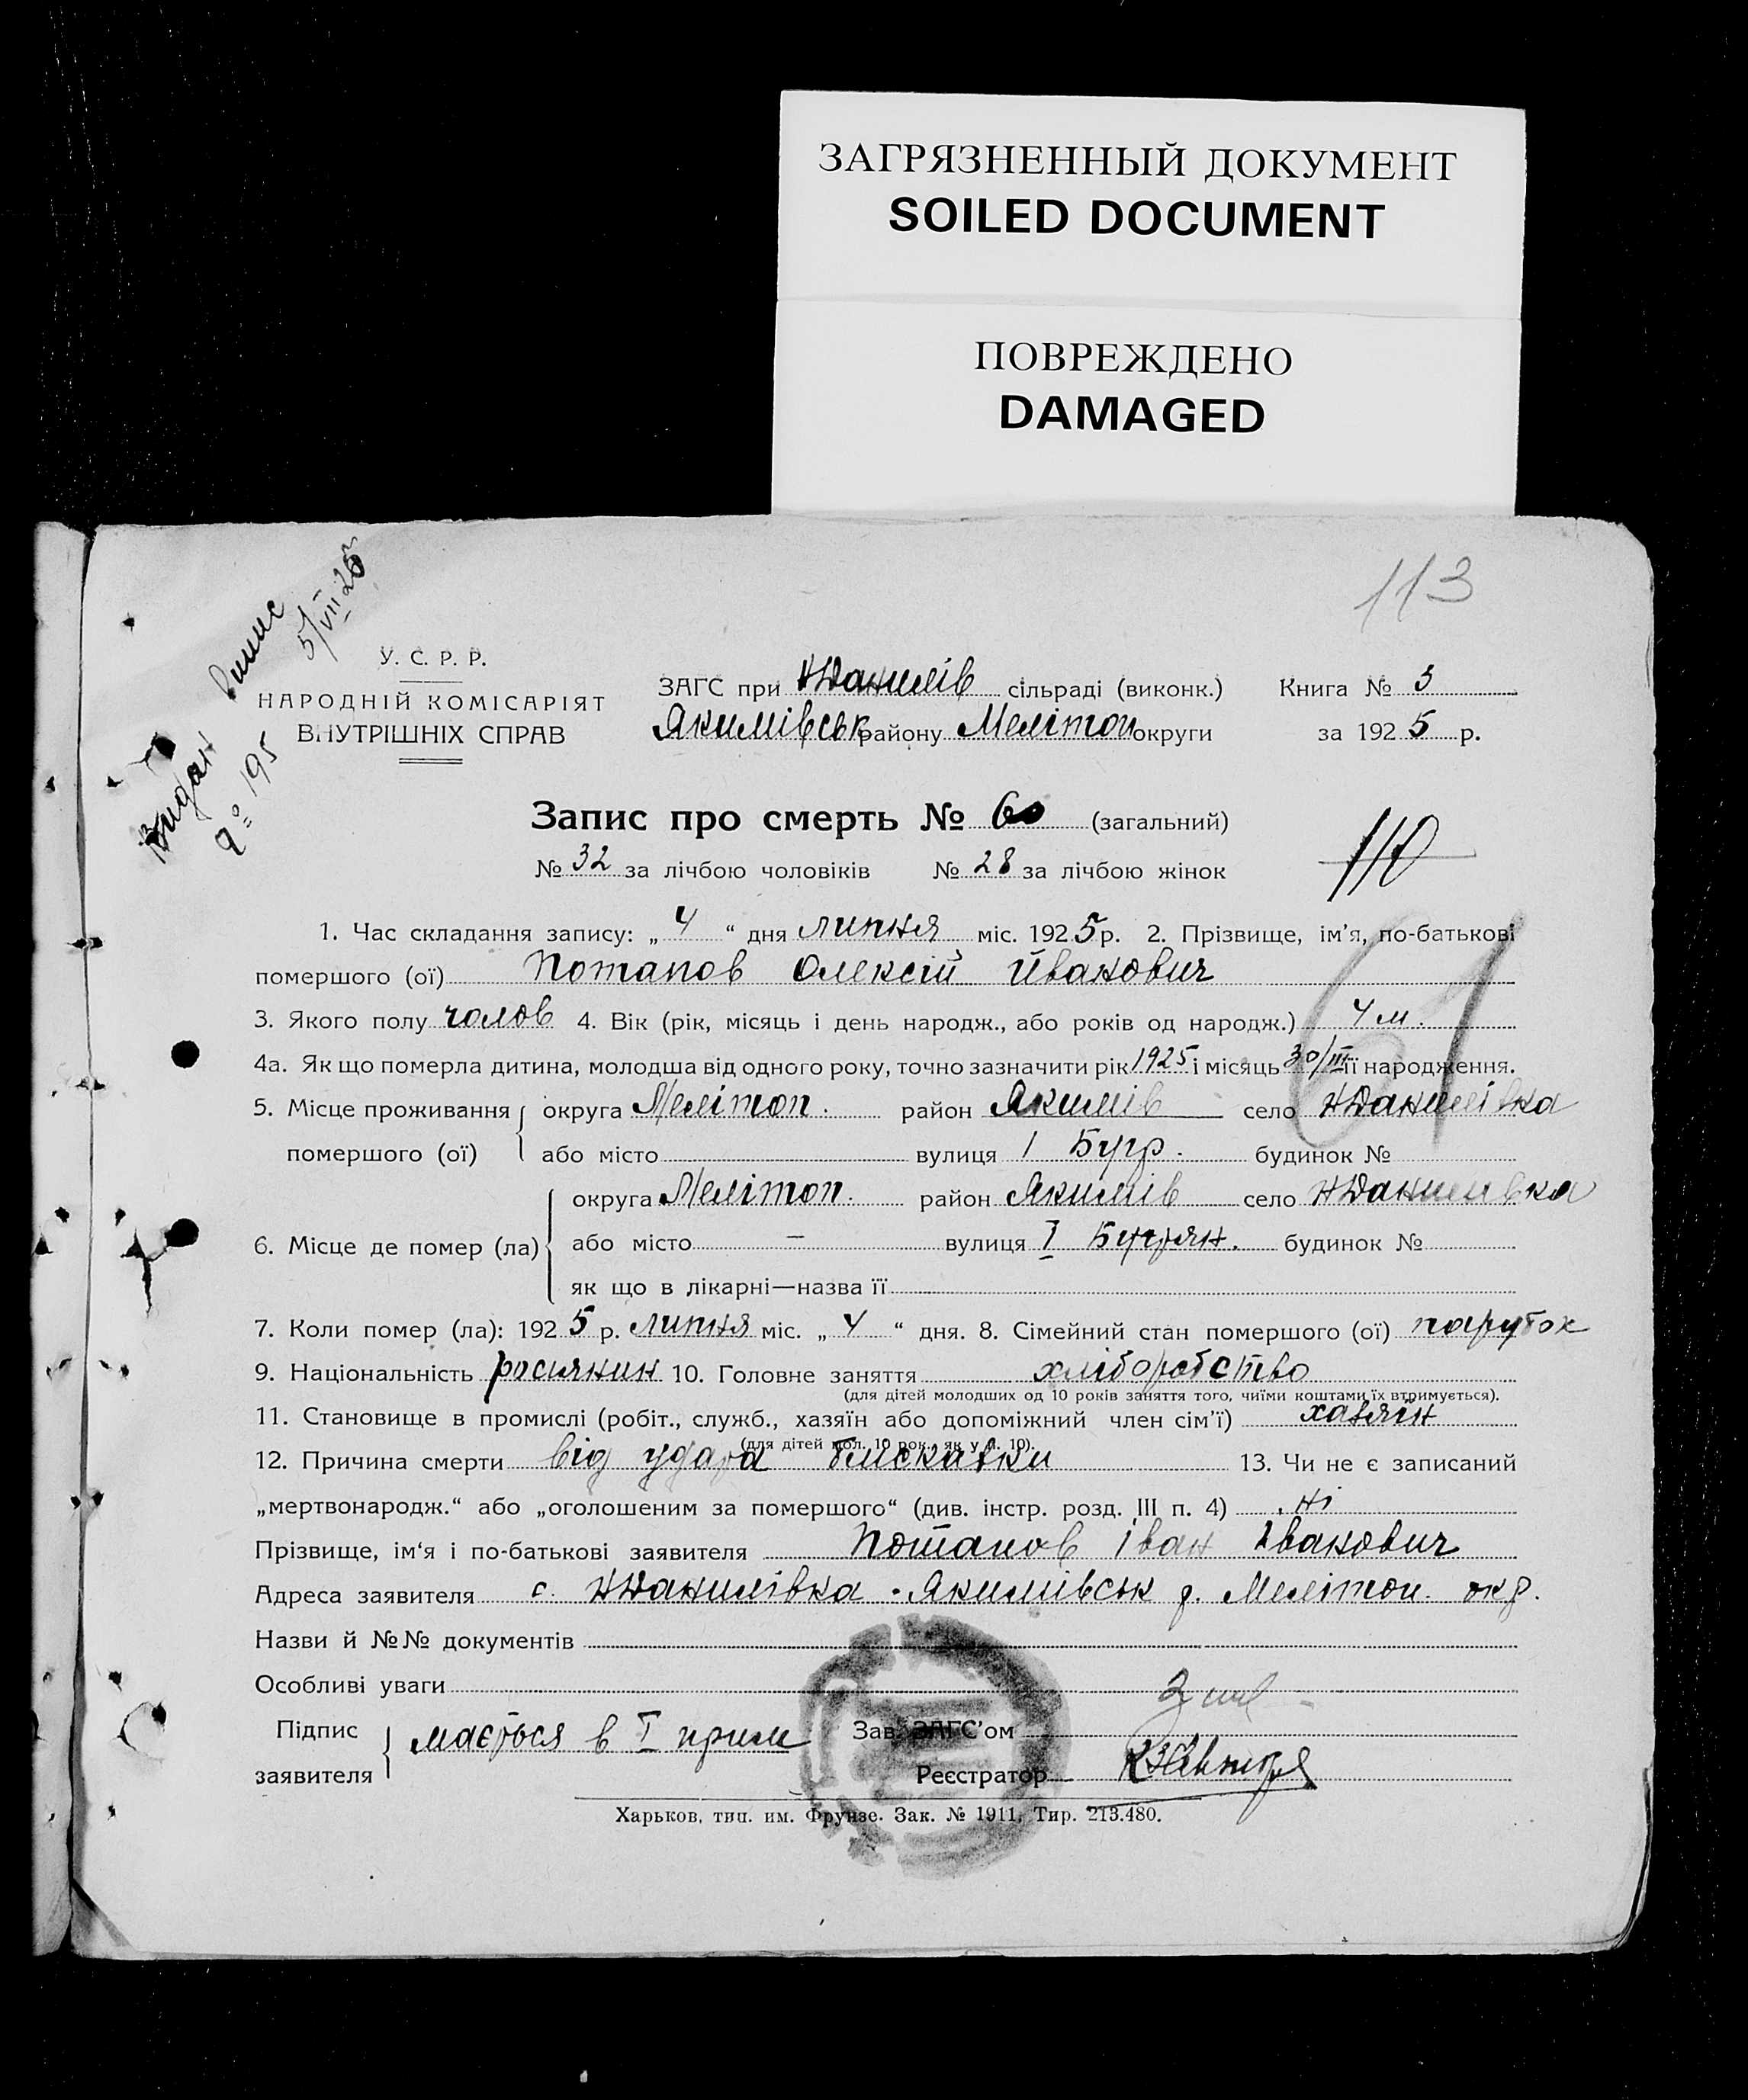 ЗАГРЯЗНЕННЫЙ ДОКУМЕНТ
SOILED DOCUMENT
ПОВРЕЖДЕНО
DAMAGED
113
Видан випис
5/VII 25
195
У. С. Р. Р.
НАРОДНІЙ КОМІСАРІЯТ
ВНУТРІШНІХ СПРАВ
ЗАГС при НДанилів сільраді (виконк.) Книга № 3
Якимівськ району Мелітоп округи за 1925 р.
Запис про смерть № 60 (загальний)
110
№ 32 за лічбою чоловіків № 28 за лічбою жінок
61
1. Час складання запису: „4“ дня липня міс. 1925 р. 2. Прізвище, ім’я, по-батькові
помершого (ої) Потапов Олексій Иванович
3. Якого полу чолов 4. Вік (рік, місяць і день народж., або років од народж.) 4 м.
4а. Як що померла дитина, молодша від одного року, точно зазначити рік 1925 і місяць 30/III її народження.
5. Місце проживання помершого (ої) округа Мелітоп. район Якимів село НДанилівка
або місто вулиця 1 Бугр. будинок №
6. Місце де помер (ла) округа Мелітоп. район Якимів село НДанилівка
або місто — вулиця I Бугрян. будинок №
як що в лікарні—назва її
7. Коли помер (ла): 1925 р. липня міс. „4“ дня. 8. Сімейний стан помершого (ої) паруток
9. Національність росиянин 10. Головне заняття хліборобство
(для дітей молодших од 10 років заняття того, чиїми коштами їх втримується).
11. Становище в промислі (робіт., служб., хазяїн або допоміжний член сім’ї) хазяїн
(для дітей мол. 10 рок., як у п. 10).
12. Причина смерти від удара блискавки 13. Чи не є записаний
„мертвонародж.“ або „оголошеним за помершого“ (див. інстр. розд. III п. 4) ні
Прізвище, ім‘я і по-батькові заявителя Потапов Іван Іванович
Адреса заявителя с. НДанилівка. Якимівськ р. Мелітоп. окр.
Назви й №№ документів
Особливі уваги
Підпис заявителя мається в I прим Зав. ЗАГС’ом
Реєстратор
Харьков, тип. им. Фрунзе. Зак. № 1911. Тир. 213.480.